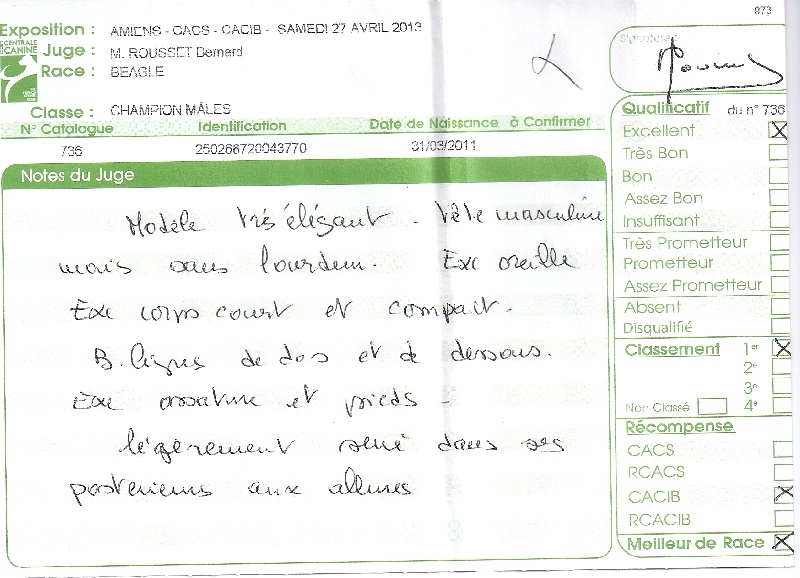 973
Exposition : AMIENS - CACS - CACIB - SAMEDI 27 AVRIL 2013
CENTRALE CANINE
Juge : M. ROUSSET Bernard
Race : BEAGLE
Classe : CHAMPION MÂLES
N° Catalogue Identification Date de Naissance à Confirmer
736 250266720043770 31/03/2011
Notes du Juge
Modèle très élégant. Tête masculine
mais sans lourdeur. Exc oreille
Exc corps court et compact.
B. lignes de dos et de dessous.
Exc ossature et pieds -
légèrement serré dans ses
postérieurs aux allures
Signature
Qualificatif du n° 736
Excellent
Très Bon
Bon
Assez Bon
Insuffisant
Très Prometteur
Prometteur
Assez Prometteur
Absent
Disqualifié
Classement 1er
2e
3e
Non Classé 4e
Récompense
CACS
RCACS
CACIB
RCACIB
Meilleur de Race